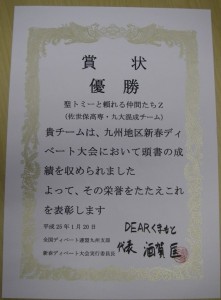 賞状
優勝
聖トミーと頼れる仲間たちZ
(佐世保高専・九大混成チーム)
貴チームは、九州地区新春ディ
ベート大会において頭書の成
績を収められました
よって、その栄誉をたたえこれ
を表彰します
平成25年1月20日
全国ディベート連盟九州支部
新春ディベート大会実行委員長
DEARくまもと
代表 酒賀